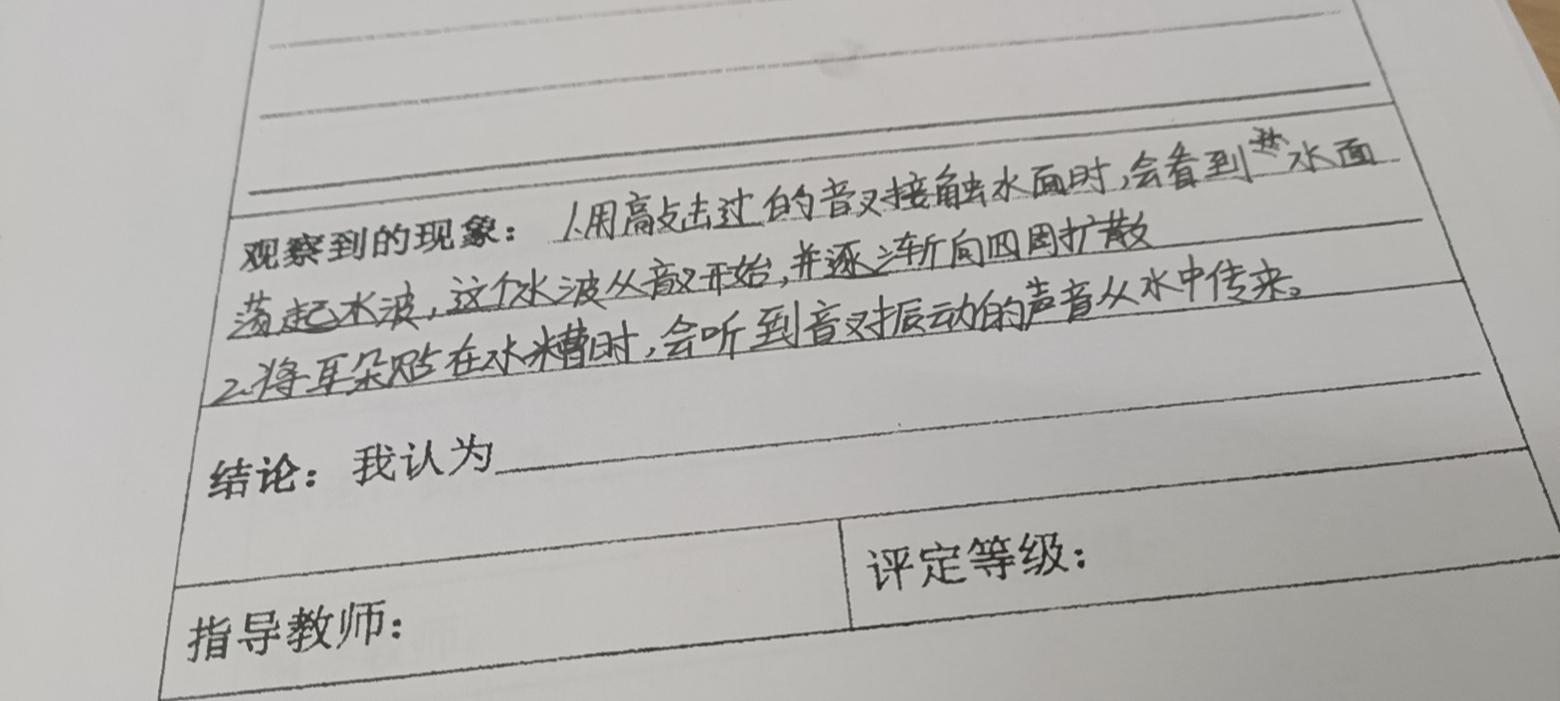 观察到的现象：1.用高攴击过的音叉接触水面时，会看到水面
荡起水波，这个水波从音叉开始，并逐渐向四周扩散
2.将耳朵贴在水槽时，会听到音叉振动的声音从水中传来。
结论：我认为
指导教师：
评定等级：